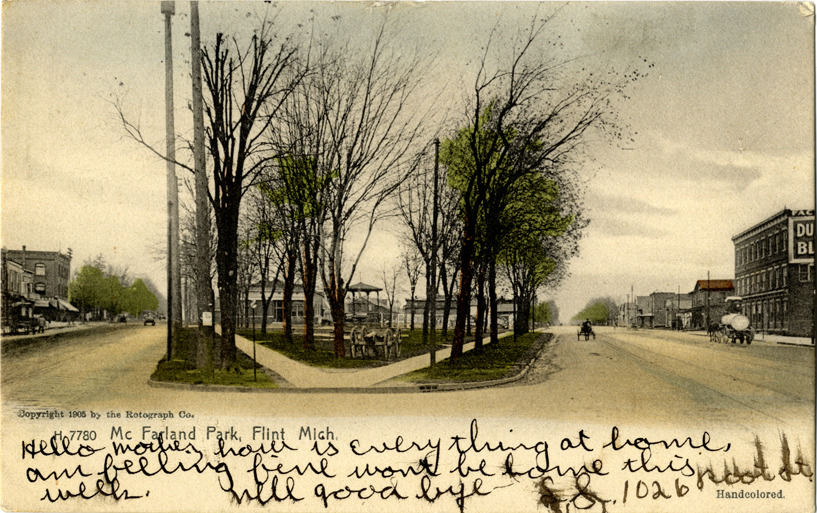 FAC
DU
BL
Copyright 1905 by the Rotograph Co.
H 7780 Mc Farland Park, Flint Mich.
Hello mother, how is everything at home,
am feeling fine wont be home this
week. Will good bye 1026 root St
Handcolored.